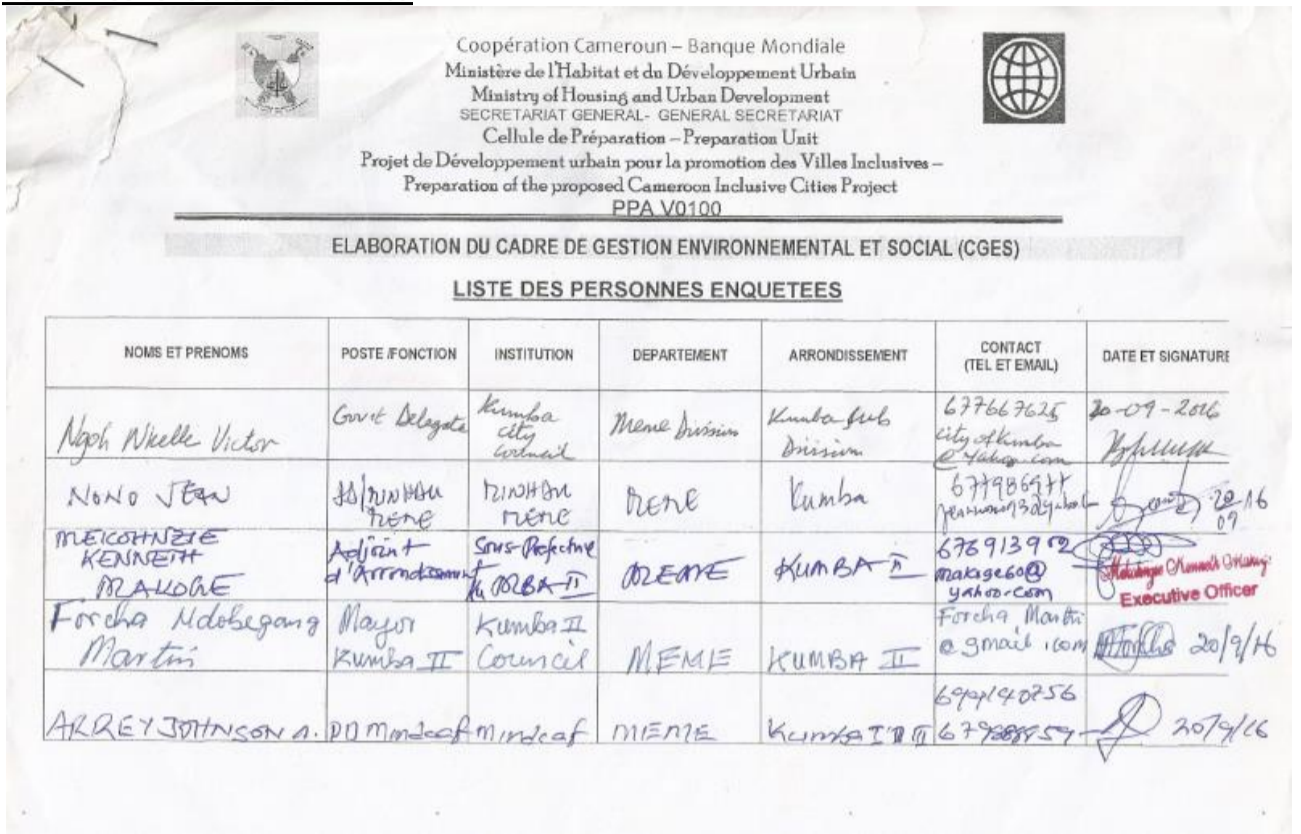 Coopération Cameroun – Banque Mondiale
Ministère de l'Habitat et du Développement Urbain
Ministry of Housing and Urban Development
SECRETARIAT GENERAL- GENERAL SECRETARIAT
Cellule de Préparation – Preparation Unit
Projet de Développement urbain pour la promotion des Villes Inclusives –
Preparation of the proposed Cameroon Inclusive Cities Project
PPA V0100
ELABORATION DU CADRE DE GESTION ENVIRONNEMENTAL ET SOCIAL (CGES)
LISTE DES PERSONNES ENQUETEES
NOMS ET PRENOMS
POSTE /FONCTION
INSTITUTION
DEPARTEMENT
ARRONDISSEMENT
CONTACT
(TEL ET EMAIL)
DATE ET SIGNATURE
Ngoh Nkelle Victor
Govt Delegate
Kumba
City
Council
Meme Division
Kumba Sub
Division
677667625
city of Kumba
@ yahoo.com
20-09-2016
NONO JEAN
MEME
MINHDU
MEME
MEME
Kumba
20
09
16
KENNETH
MAKOGE
Adjoint
d'Arrondissement
Sous-Prefecture
KUMBA II
MEME
KUMBA II
676913902
makoge60@
yahoo.com
Executive Officer
Forcha Ndobegang
Martin
Mayor
Kumba II
Kumba II
Council
MEME
KUMBA II
Forcha Martin
@ gmail.com
20/9/16
ARREY JOHNSON A.
DD Mindcaf
Mindcaf
MEME
Kumba
20/9/16